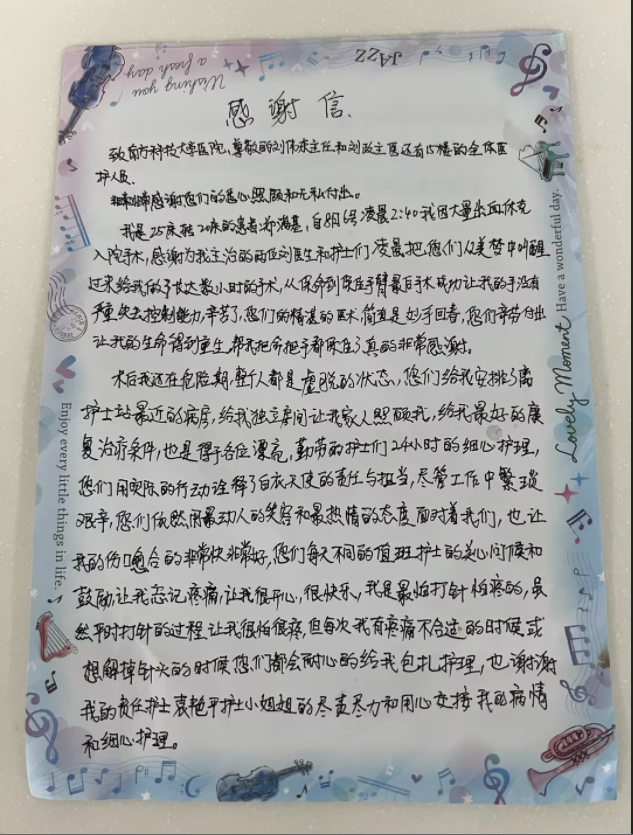 Wishing you
a fresh day.
JAZZ
感谢信
致南方科技大学医院,尊敬的刘伟宗主任和刘政主医还有15楼的全体医
护人员.
非常非常感谢您们的悉心照顾和无私付出。
我是25床转20床的患者:郑海基,自8月6号凌晨2:40我因大量出血休克
入院手术,感谢为我主治的两位刘医生和护士们凌晨把您们从美梦中叫醒
过来给我做了长达数小时的手术,从保命到保住手臂最后手术成功让我的手没有
严重失去控制能力,辛苦了,您们的精湛的医术,简直是妙手回春,您们辛劳付出
让我的生命得到重生,帮我把命把手都保住了真的非常感谢。
术后我还在危险期,整个人都是虚脱的状态,您们给我安排了离
护士站最近的病房,给我独立房间让我家人照顾我,给我最好的康
复治疗条件,也是得于各位漂亮,勤劳的护士们24小时的细心护理,
您们用实际的行动诠释了白衣天使的责任与担当,尽管工作中繁琐
艰辛,您们依然用最动人的笑容和最热情的态度面对着我们,也让
我的伤口愈合的非常快非常好,您们每天不同的值班护士的关心问候和
鼓励,让我忘记疼痛,让我很开心,很快乐,我是最怕打针怕疼的,虽
然平时打针的过程让我很怕很疼,但每次我有疼痛不合适的时候或
想解掉针头的时候您们都会耐心的给我包扎护理,也谢谢
我的责任护士袁艳平护士小姐姐的尽责尽力和用心交接我的病情
和细心护理。
Have a wonderful day.
Lovely Moment
Enjoy every little things in life